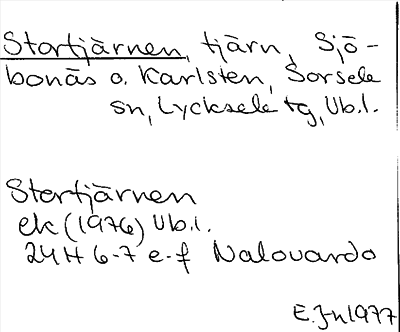 Stortjärnen, tjärn, Sjö-
bonäs o. Karlsten, Sorsele
sn, Lycksele tg, Vb.l.
Stortjärnen
ek (1976) Vb.l.
24H 6-7 e-f Nalovardo
E.Jn 1977